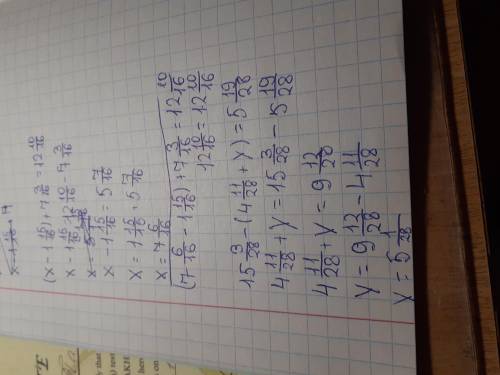 (x - 1 15/16) + 7 3/16 = 12 10/16
x - 1 15/16 = 12 10/16 - 7 3/16
x - 1 15/16 = 5 7/16
x = 1 15/16 + 5 7/16
x = 7 6/16
(7 6/16 - 1 15/16) + 7 3/16 = 12 10/16
12 10/16 = 12 10/16
15 3/28 - (4 11/28 + y) = 5 19/28
4 11/28 + y = 15 3/28 - 5 19/28
4 11/28 + y = 9 12/28
y = 9 12/28 - 4 11/28
y = 5 1/28